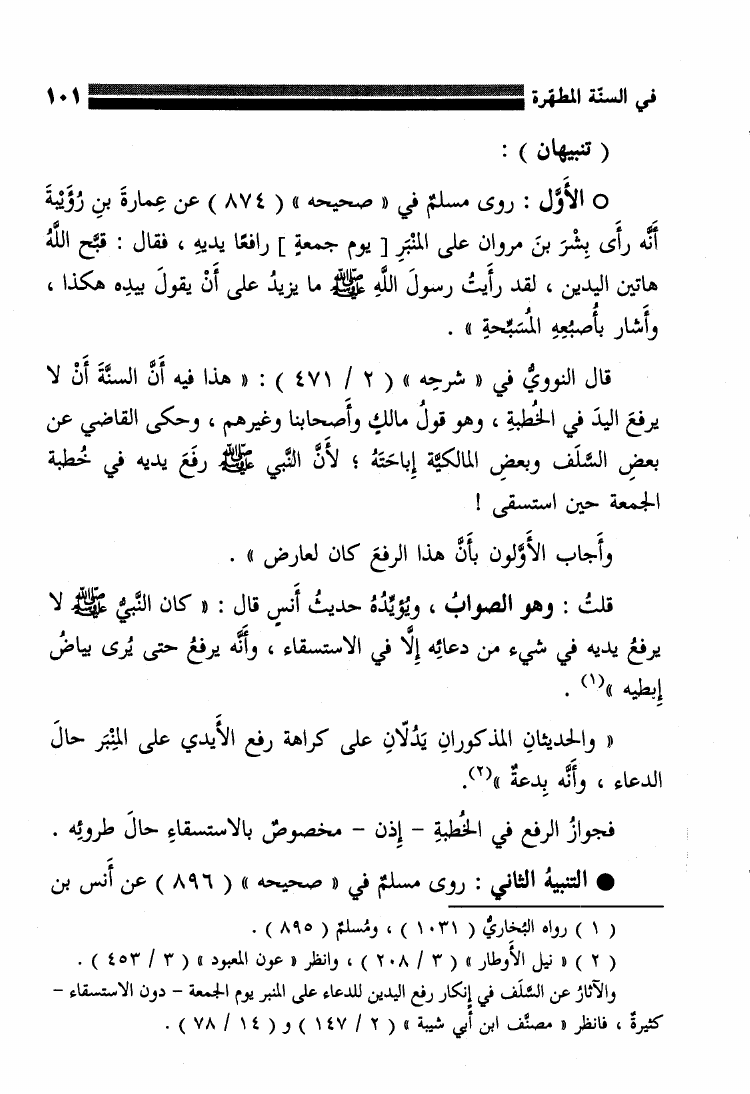 في السنّة المطهّرة ١٠١
( تنبيهان ) :
○ الأَوَّل : روى مسلمٌ في « صحيحه » ( ٨٧٤ ) عن عِمارةَ بنِ رُؤَيْبةَ
أَنَّه رأَى بِشْرَ بنَ مروان على المنْبَرِ [ يوم جمعةٍ ] رافعًا يديهِ ، فقال : قبَّح اللَّهُ
هاتينِ اليدين ، لقد رأَيتُ رسولَ اللَّهِ ﷺ ما يزيدُ على أَنْ يقولَ بيدِه هكذا ،
وأَشار بأُصبُعِهِ المُسَبِّحةِ » .
قال النوويُّ في « شرحِه » ( ٢ / ٤٧١ ) : « هذا فيه أَنَّ السنَّةَ أَنْ لا
يرفعَ اليدَ في الخُطبةِ ، وهو قولُ مالكٍ وأَصحابنا وغيرهم ، وحكى القاضي عن
بعضِ السَّلَف وبعضِ المالكيَّة إِباحَتَهُ ؛ لأَنَّ النَّبي ﷺ رفَعَ يديه في خُطبة
الجمعة حين استسقى !
وأَجاب الأَوَّلون بأَنَّ هذا الرفعَ كان لعارض » .
قلتُ : وهو الصوابُ ، ويُؤيِّدُهُ حديثُ أَنسٍ قال : « كان النَّبيُّ ﷺ لا
يرفعُ يديه في شيء من دعائِه إِلَّا في الاستسقاء ، وأَنَّه يرفعُ حتى يُرى بياضُ
إِبطيه »(١) .
« والحديثانِ المذكورانِ يَدُلّانِ على كراهة رفع الأَيدي على المِنْبَر حالَ
الدعاء ، وأَنَّه بِدعةٌ »(٢).
فجوازُ الرفع في الخُطبةِ - إِذن - مخصوصٌ بالاستسقاءِ حالَ طروئِه .
● التنبيهُ الثاني : روى مسلمٌ في « صحيحه » ( ٨٩٦ ) عن أَنس بن
( ١ ) رواه البُخاريُّ ( ١٠٣١ ) ، ومُسلمٌ ( ٨٩٥ ) .
( ٢ ) « نيل الأَوطار » ( ٣ / ٢٠٨ ) ، وانظر « عون المعبود » ( ٣ / ٤٥٣ ) .
والآثارُ عن السَّلَف في إِنكار رفع اليدين للدعاء على المنبر يوم الجمعة - دون الاستسقاء -
كثيرةٌ ، فانظر « مصنَّف ابن أَبي شيبة » ( ٢ / ١٤٧ ) و ( ١٤ / ٧٨ ) .